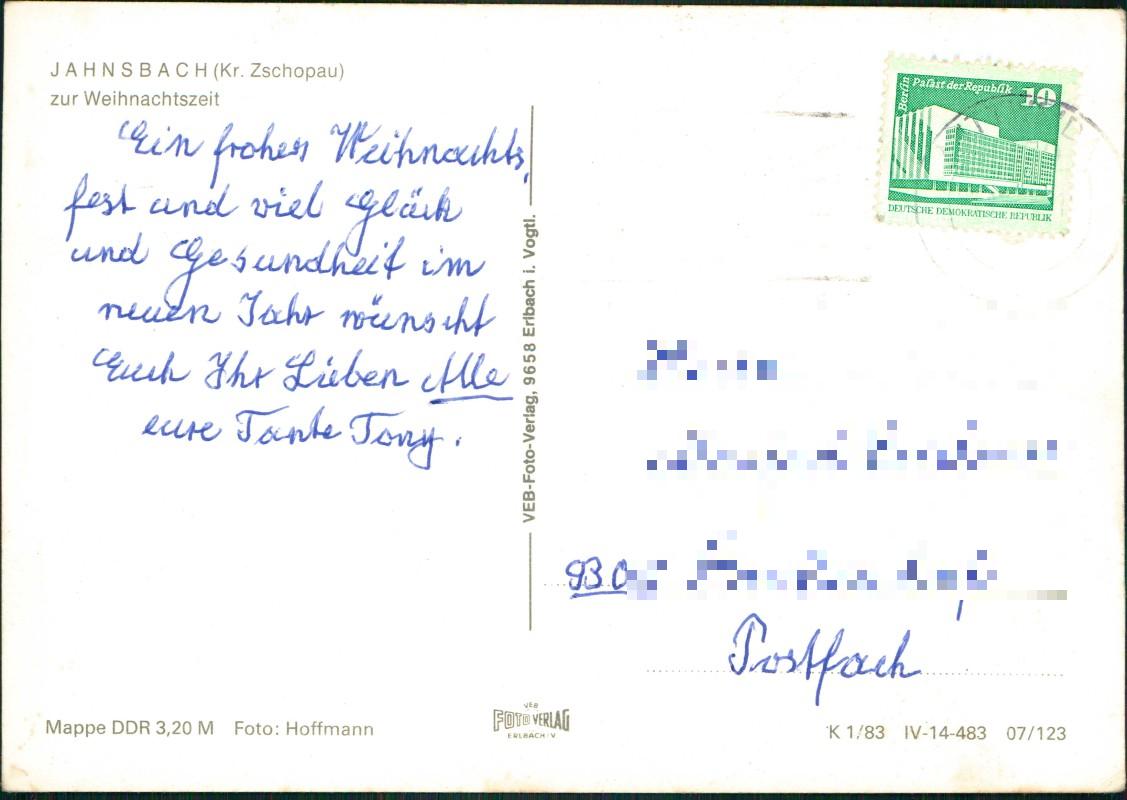 JAHNSBACH (Kr. Zschopau)
zur Weihnachtszeit
Ein frohes Weihnachts,
fest und viel Glück
und Gesundheit im
neuen Jahr wünscht
Euch Ihr Lieben Alle
eure Tante Tony.
VEB-Foto-Verlag, 9658 Erlbach i. Vogtl.
Berlin
Palast der Republik
10
DEUTSCHE DEMOKRATISCHE REPUBLIK
930
Postfach
Mappe DDR 3,20 M Foto: Hoffmann
VEB
FOTO VERLAG
ERLBACH/V
K 1/83 IV-14-483 07/123